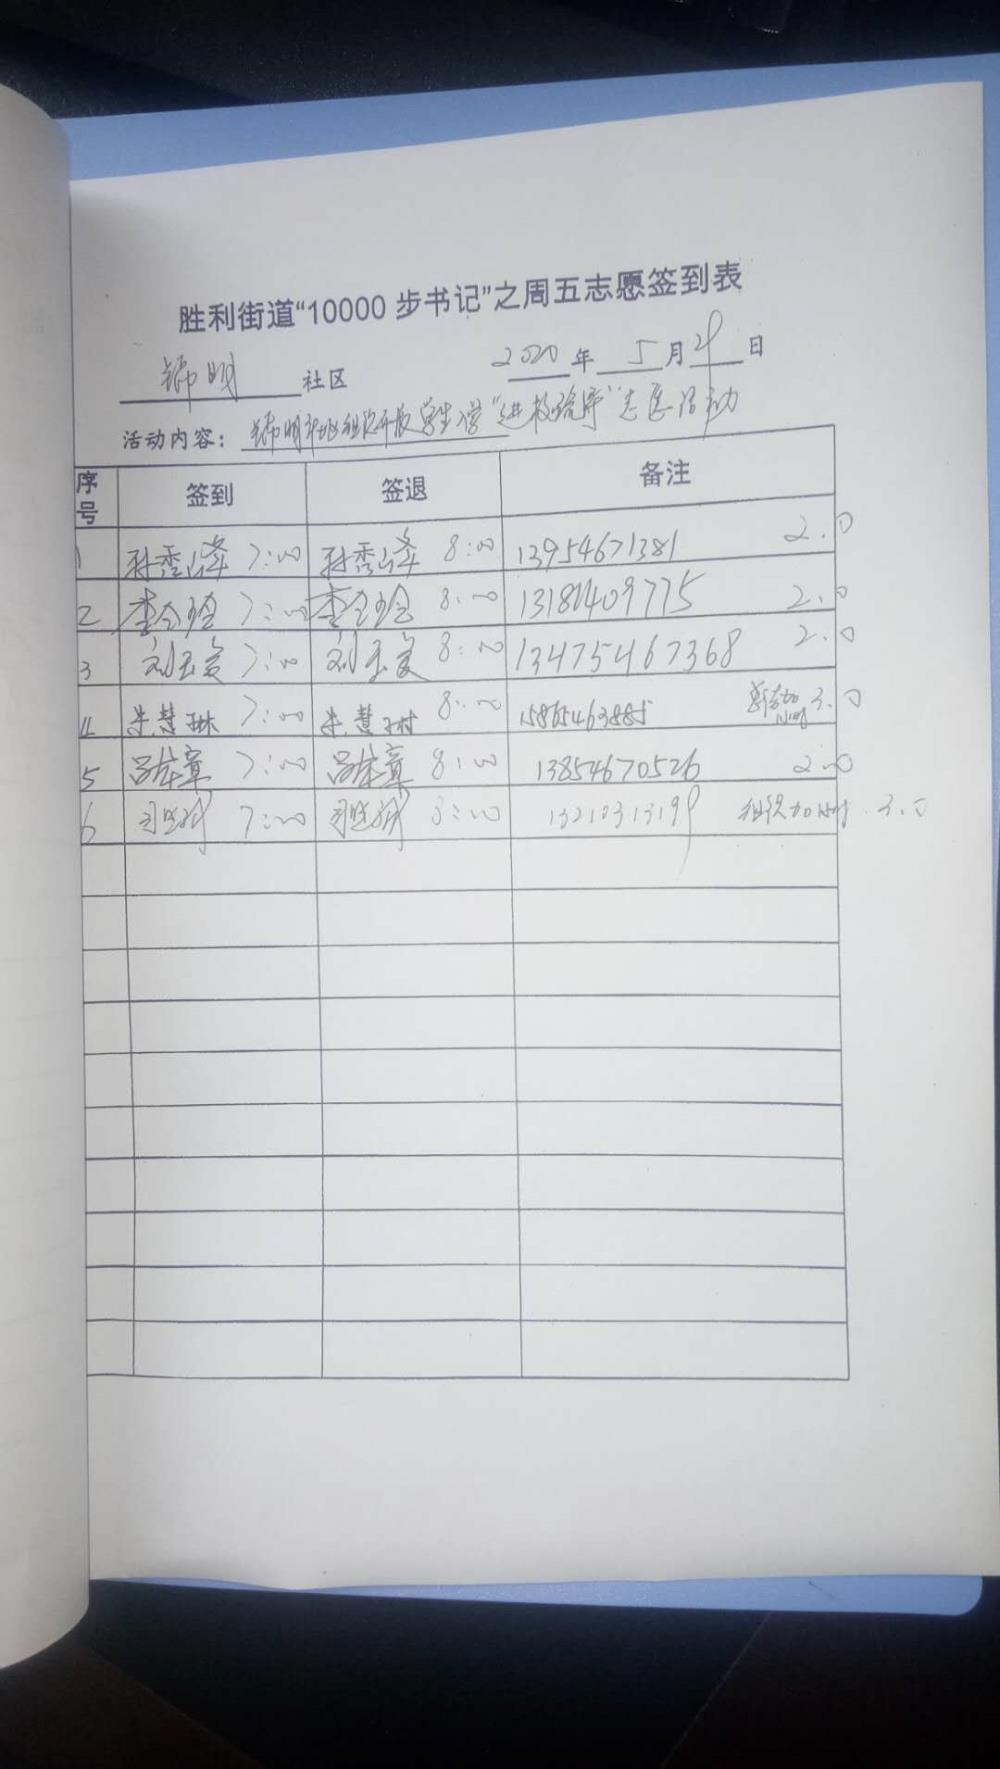 胜利街道“10000步书记”之周五志愿签到表
锦明 社区 2020年 5月29日
活动内容： 锦明社区组织开展学生入学“进校秩序”志愿活动
序号 签到 签退 备注
1 孙秀峰 7:00 孙秀峰 8:00 13954671381 2.0
2 李 7:00 李 8:00 13181409775 2.0
3 刘玉 7:00 刘玉 8:00 13475467368 2.0
4 朱慧琳 7:00 朱慧琳 8:00 15865463885 3.0
5 吕 章 7:00 吕 章 8:00 13854670526 2.0
6 7:00 8:00 13210313199 组织加小时 3.0